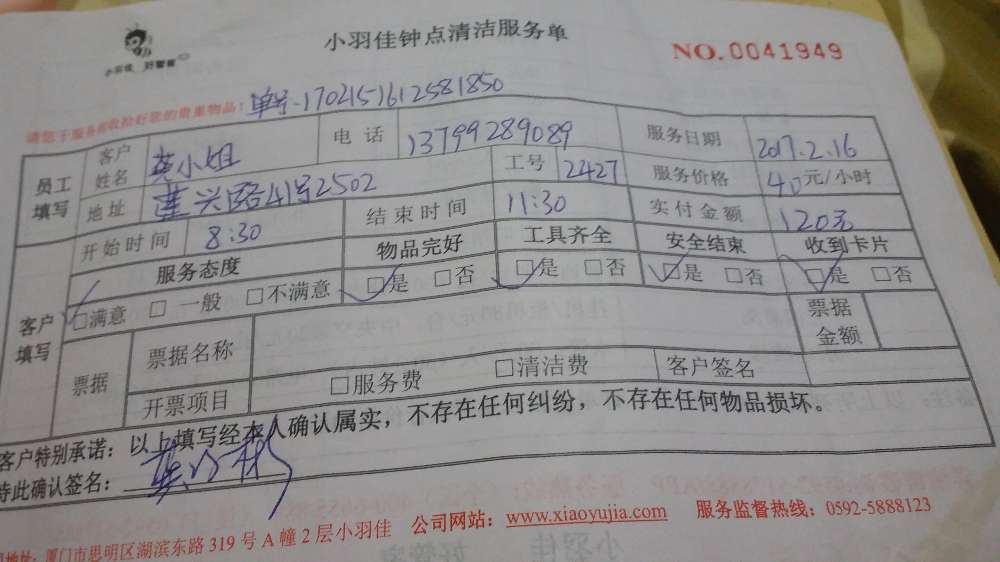 小羽佳 好管家
小羽佳钟点清洁服务单
NO.0041949
请您于服务前收拾好您的贵重物品!
单号-1702151612581850
员工填写
客户姓名 黄小姐 电话 13799289089 服务日期 2017.2.16
地址 莲兴路41号2502 工号 2427 服务价格 40元/小时
开始时间 8:30 结束时间 11:30 实付金额 120元
客户填写
服务态度 物品完好 工具齐全 安全结束 收到卡片
☑满意 □ 一般 □不满意 ☑是 □否 ☑是 □否 ☑是 □否 ☑是 □否
票据 票据名称 票据金额
开票项目 □服务费 □清洁费 客户签名
客户特别承诺：以上填写经本人确认属实，不存在任何纠纷，不存在任何物品损坏。
特此确认签名：
地址：厦门市思明区湖滨东路 319 号 A 幢 2 层小羽佳 公司网站：www.xiaoyujia.com 服务监督热线：0592-5888123